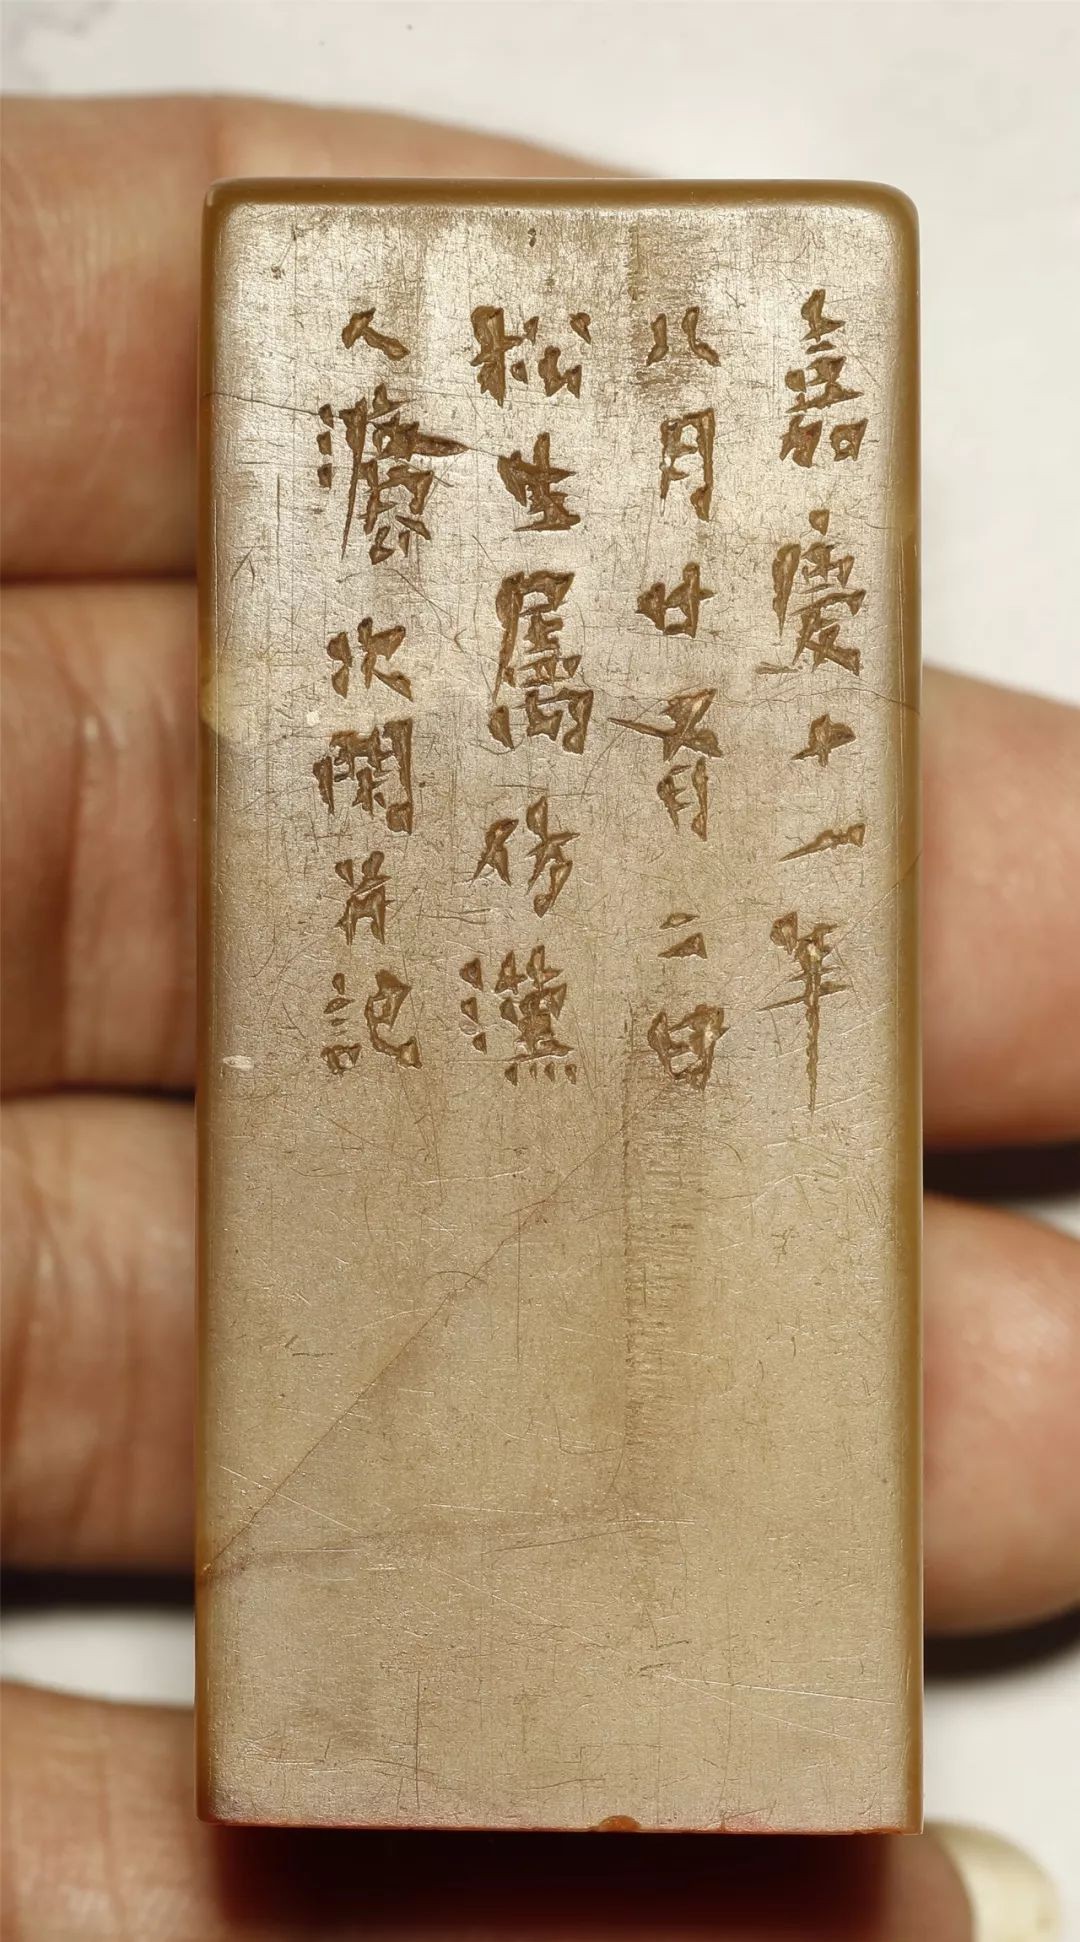 嘉慶十一年
八月廿有二日
松生屬仿漢
人灋次閑并記